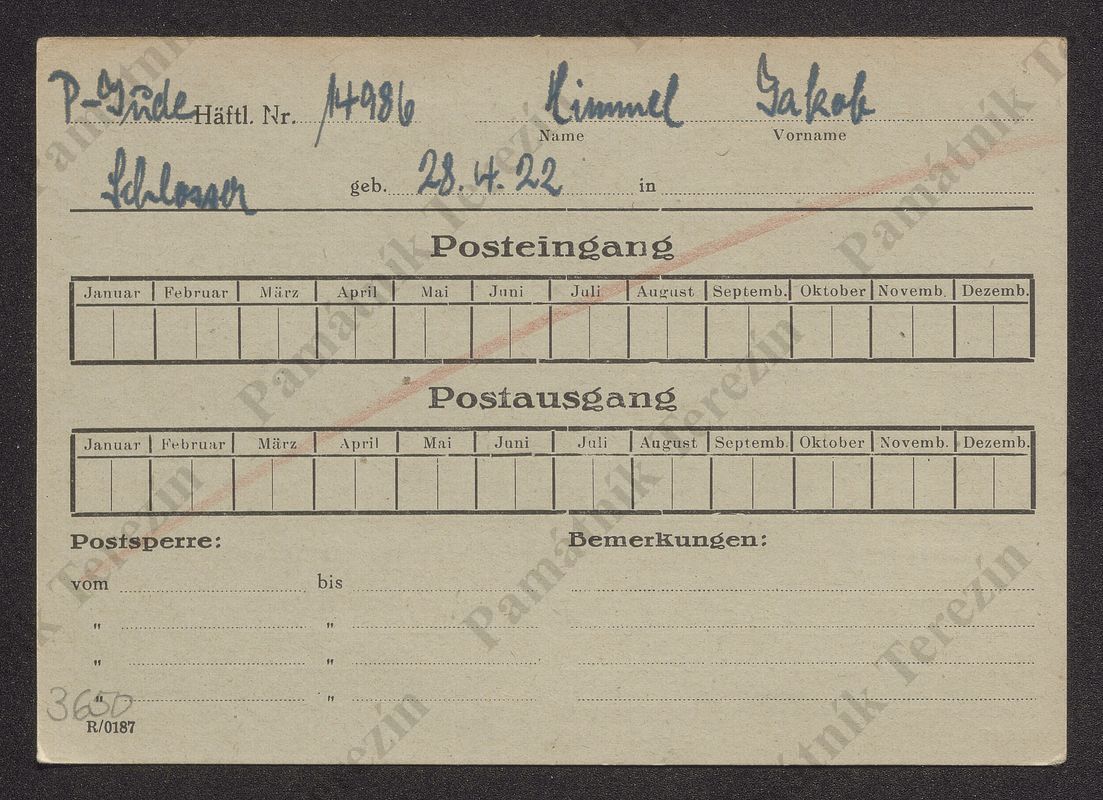 P-Jude Häftl. Nr. 14986 Himmel Jakob
Name Vorname
Schlosser geb. 28.4.22 in
Posteingang
Januar Februar März April Mai Juni Juli August Septemb. Oktober Novemb. Dezemb.
Postausgang
Januar Februar März April Mai Juni Juli August Septemb. Oktober Novemb. Dezemb.
Postsperre: Bemerkungen:
vom bis
" "
" "
" "
3650
R/0187
Památník Terezín